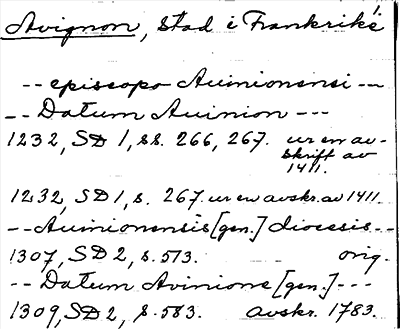 1.
Avignon, Stad i Frankrike
-- episcopo Auinionensi --
-- Datum Auinion ---
1232, SD 1, ss. 266, 267. ur en av-
skrift av
1411.
1232, SD 1, s. 267. ur en avskr. av 1411.
-- Auinionensis [gen.] diocesis --
1307, SD 2, s. 573. orig.
-- Datum Avinione [gen.] ---
1309, SD 2, s. 583. avskr. 1783.